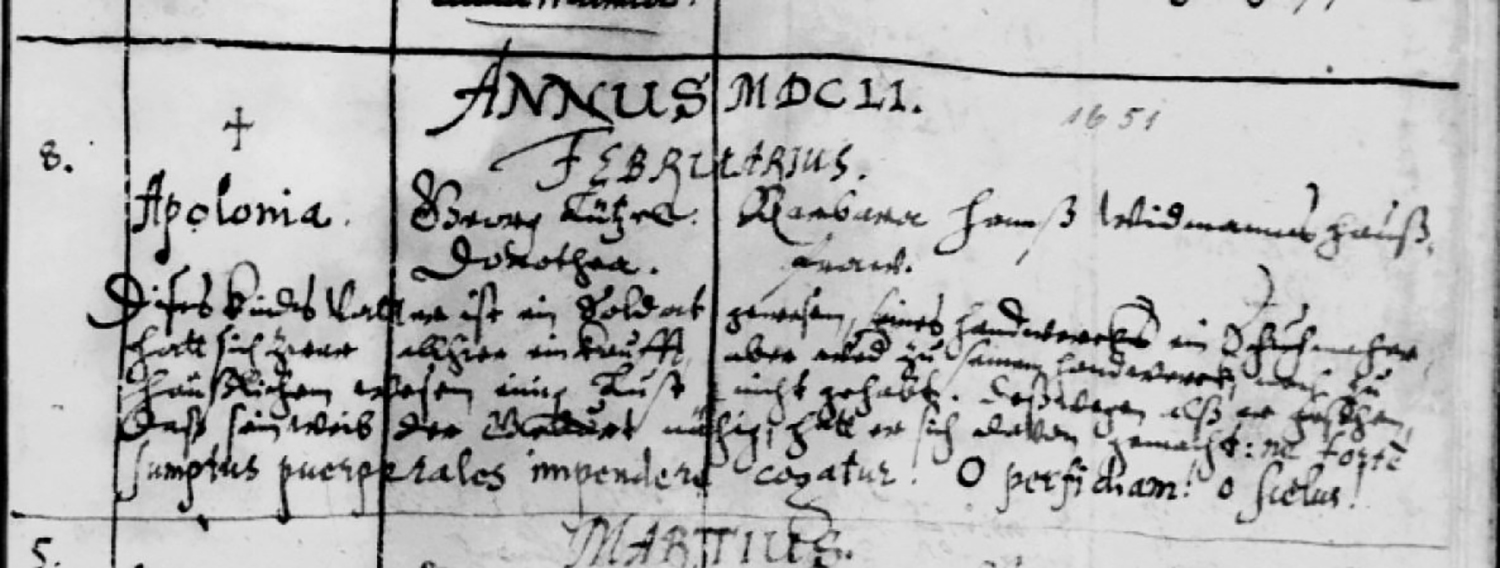 ANNUS MDCLI.
1651
FEBRUARIUS.
8. Apolonia. Georg Barbara Hannß Widmanns Hauß
Dorothea. fraw.
Dises Kindes Vatter ist ein Soldat gewesen, seines handwercks ein Schuhmacher,
hatt sich zwar allhier einkaufft, aber weder zu seinem handwerck, noch zu
häußlichem wesen einig Lust nicht gehabt. Deßwegen alß er gesehen,
daß sein weib der Geburt nähig, hatt er sich davon gemacht: ne forte
sumptus puerperales impendere cogatur! O perfidiam! o scelus!
MARTIUS.
5.